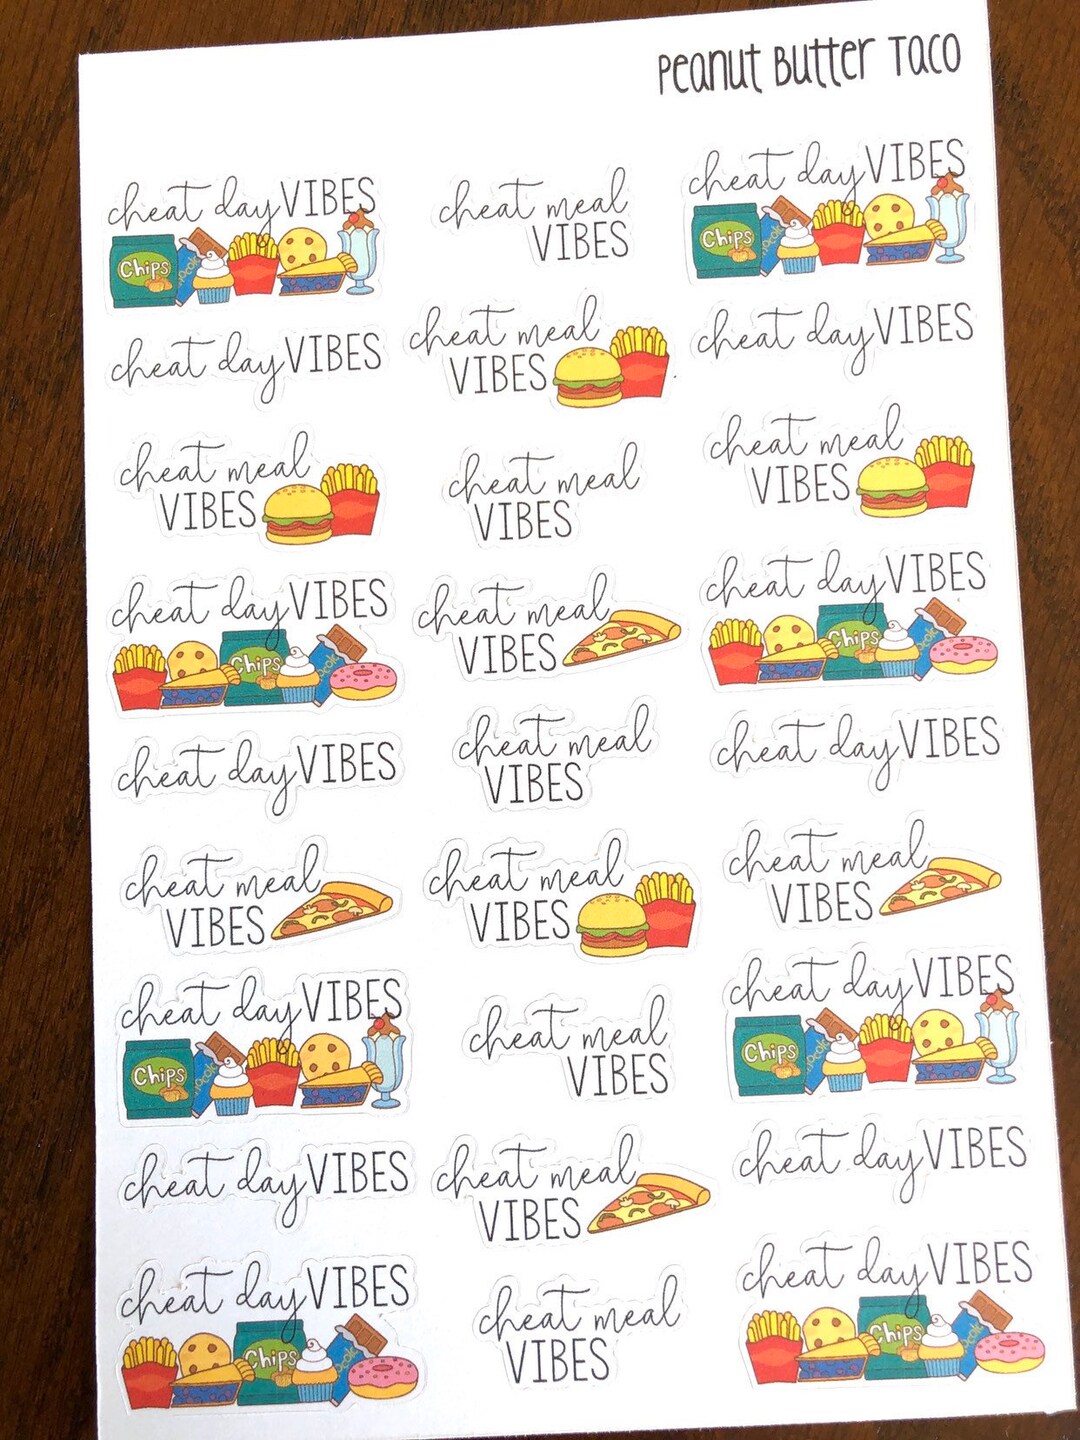 Peanut Butter Taco
cheat day VIBES
Chips
cheat meal
VIBES
cheat day VIBES
Chips
cheat day VIBES
cheat meal
VIBES
cheat day VIBES
cheat meal
VIBES
cheat meal
VIBES
cheat meal
VIBES
cheat day VIBES
Chips
cheat meal
VIBES
cheat day VIBES
Chips
cheat day VIBES
cheat meal
VIBES
cheat day VIBES
cheat meal
VIBES
cheat meal
VIBES
cheat meal
VIBES
cheat day VIBES
Chips
cheat meal
VIBES
cheat day VIBES
Chips
cheat day VIBES
cheat meal
VIBES
cheat day VIBES
cheat day VIBES
Chips
cheat meal
VIBES
cheat day VIBES
Chips